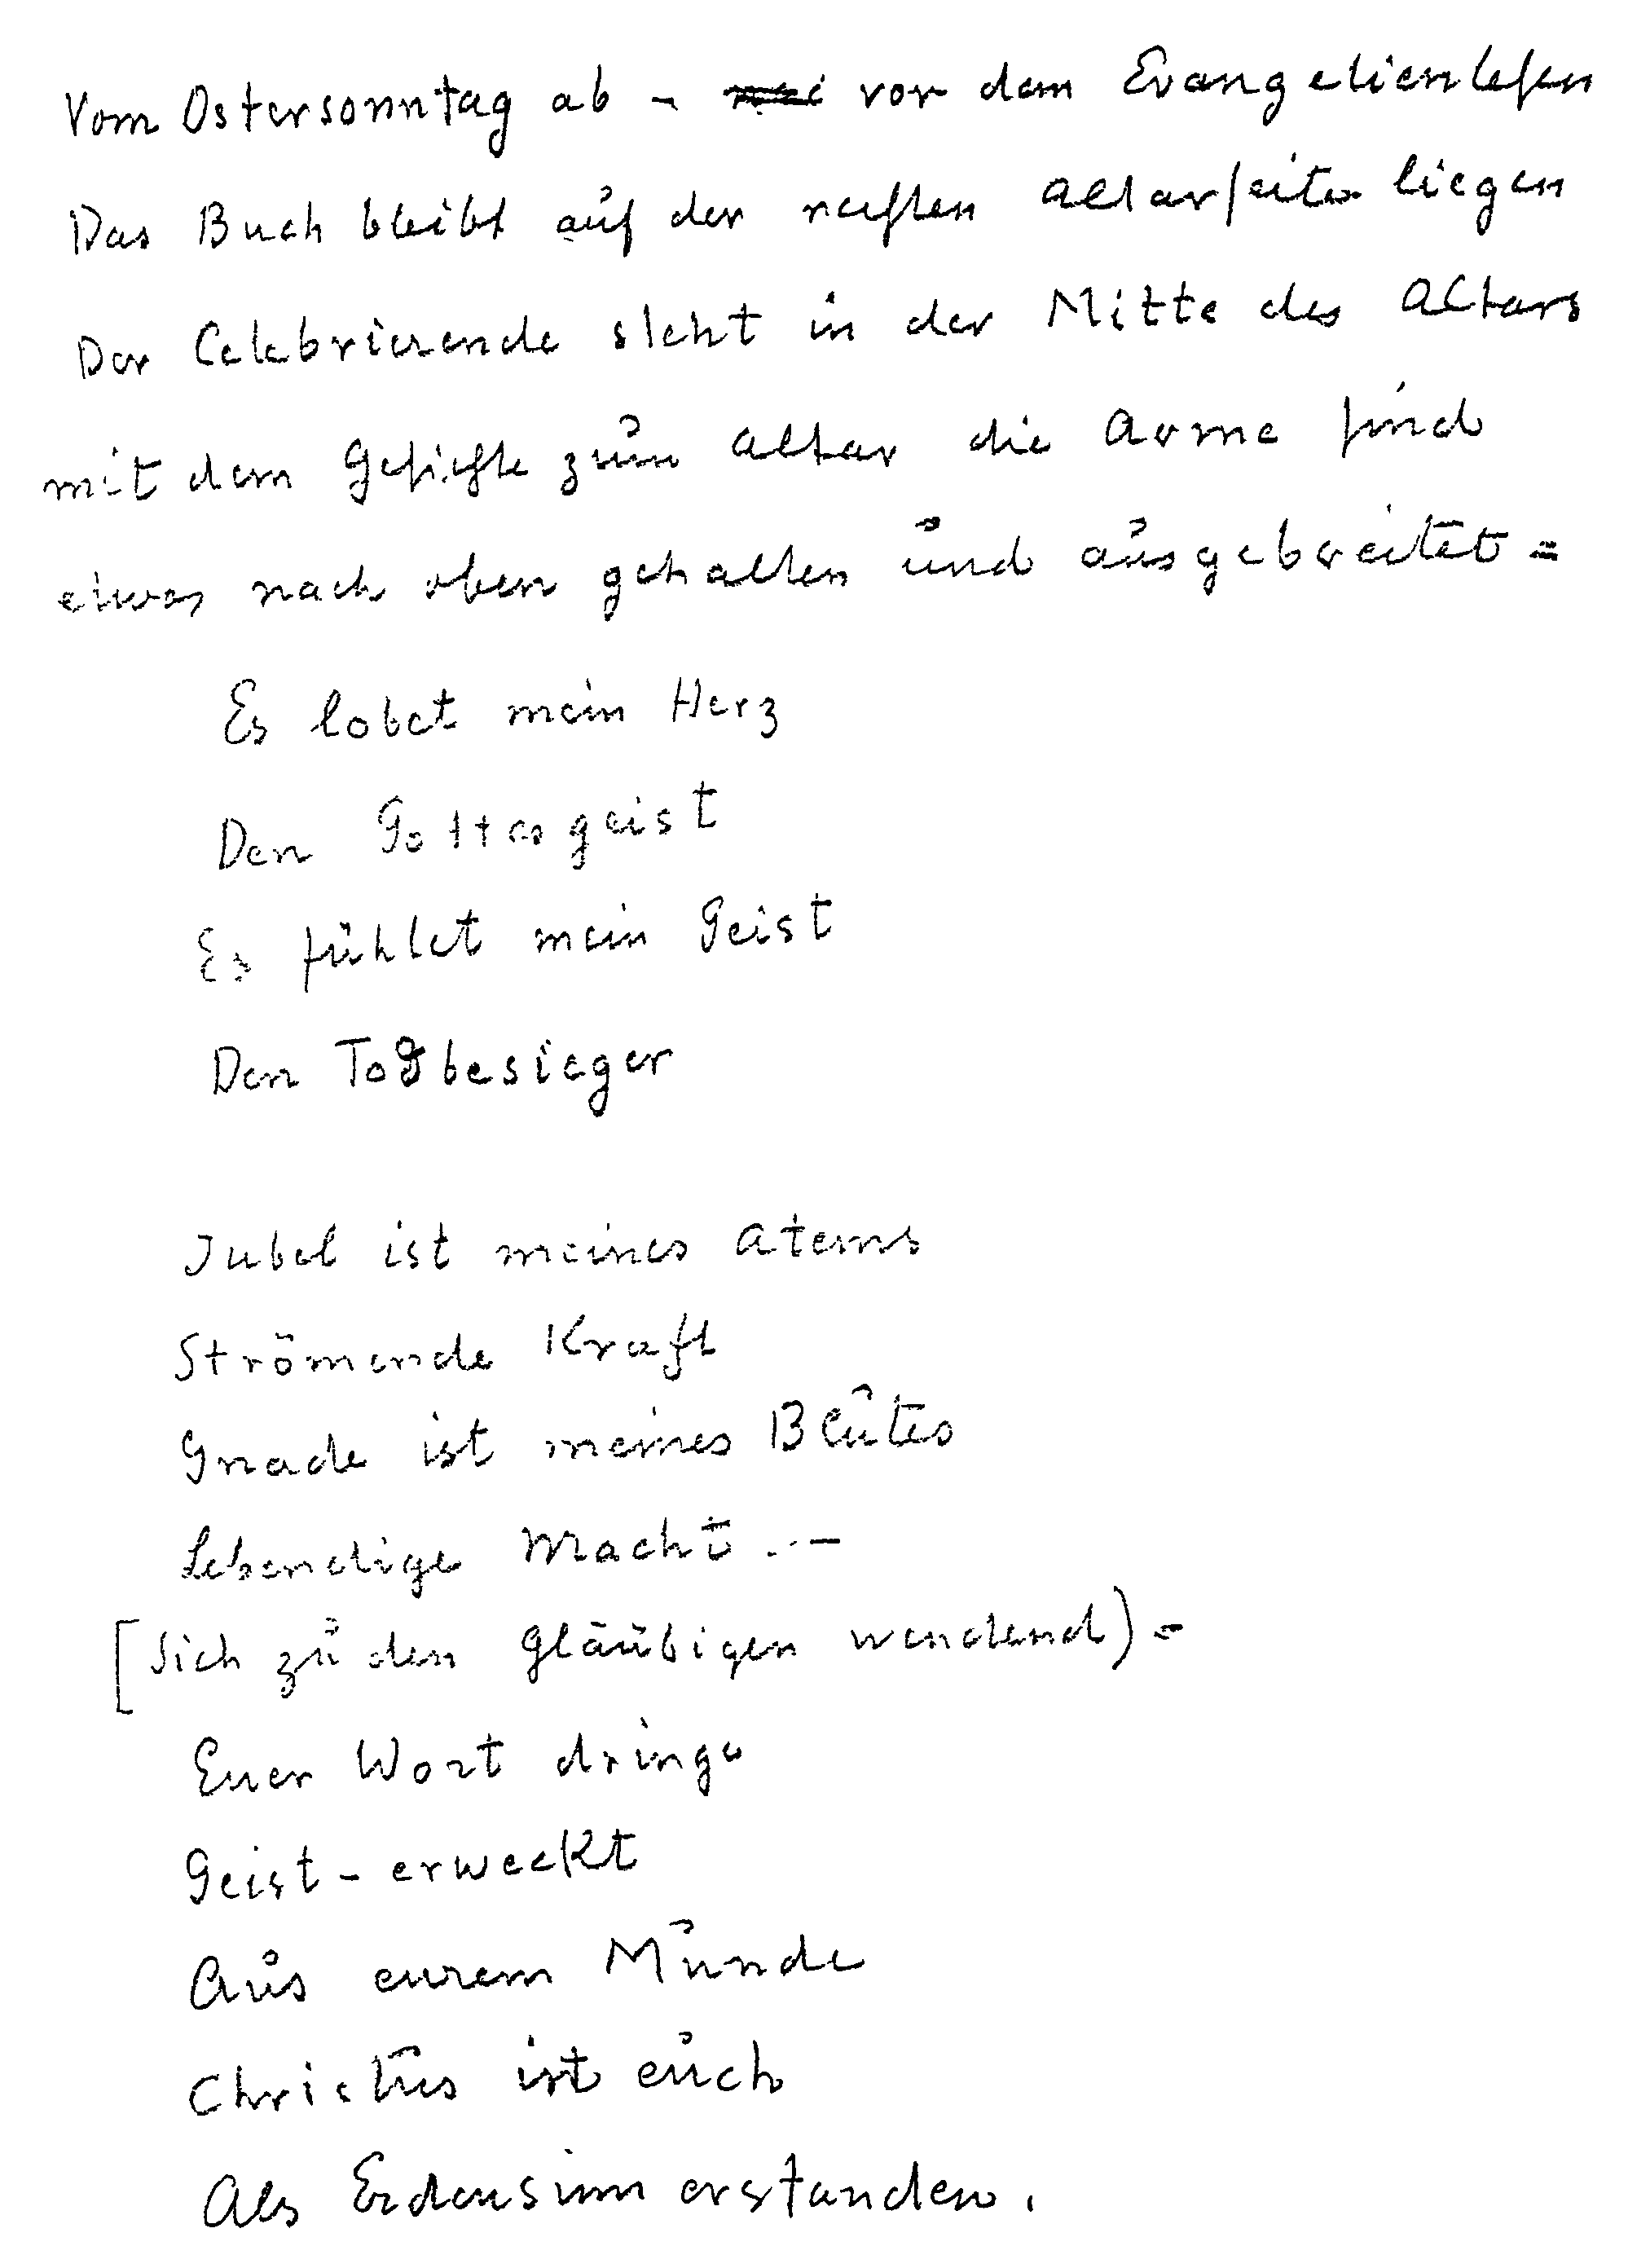 Vom Ostersonntag ab - vor dem Evangelienlesen
Das Buch bleibt auf der rechten Altarseite liegen
Der Celebrierende steht in der Mitte des Altars
mit dem Gesichte zum Altar die Arme sind
etwas nach oben gehalten und ausgebreitet =
Es lobet mein Herz
Den Gottesgeist
Es fühlet mein Geist
Den Todbesieger
Jubel ist meines Atems
Strömende Kraft
Gnade ist meines Blutes
Lebendige Macht .. -
[Sich zu den Gläubigen wendend) =
Euer Wort dringe
Geist-erweckt
Aus eurem Munde
Christus ist euch
Als Erdensinn erstanden.